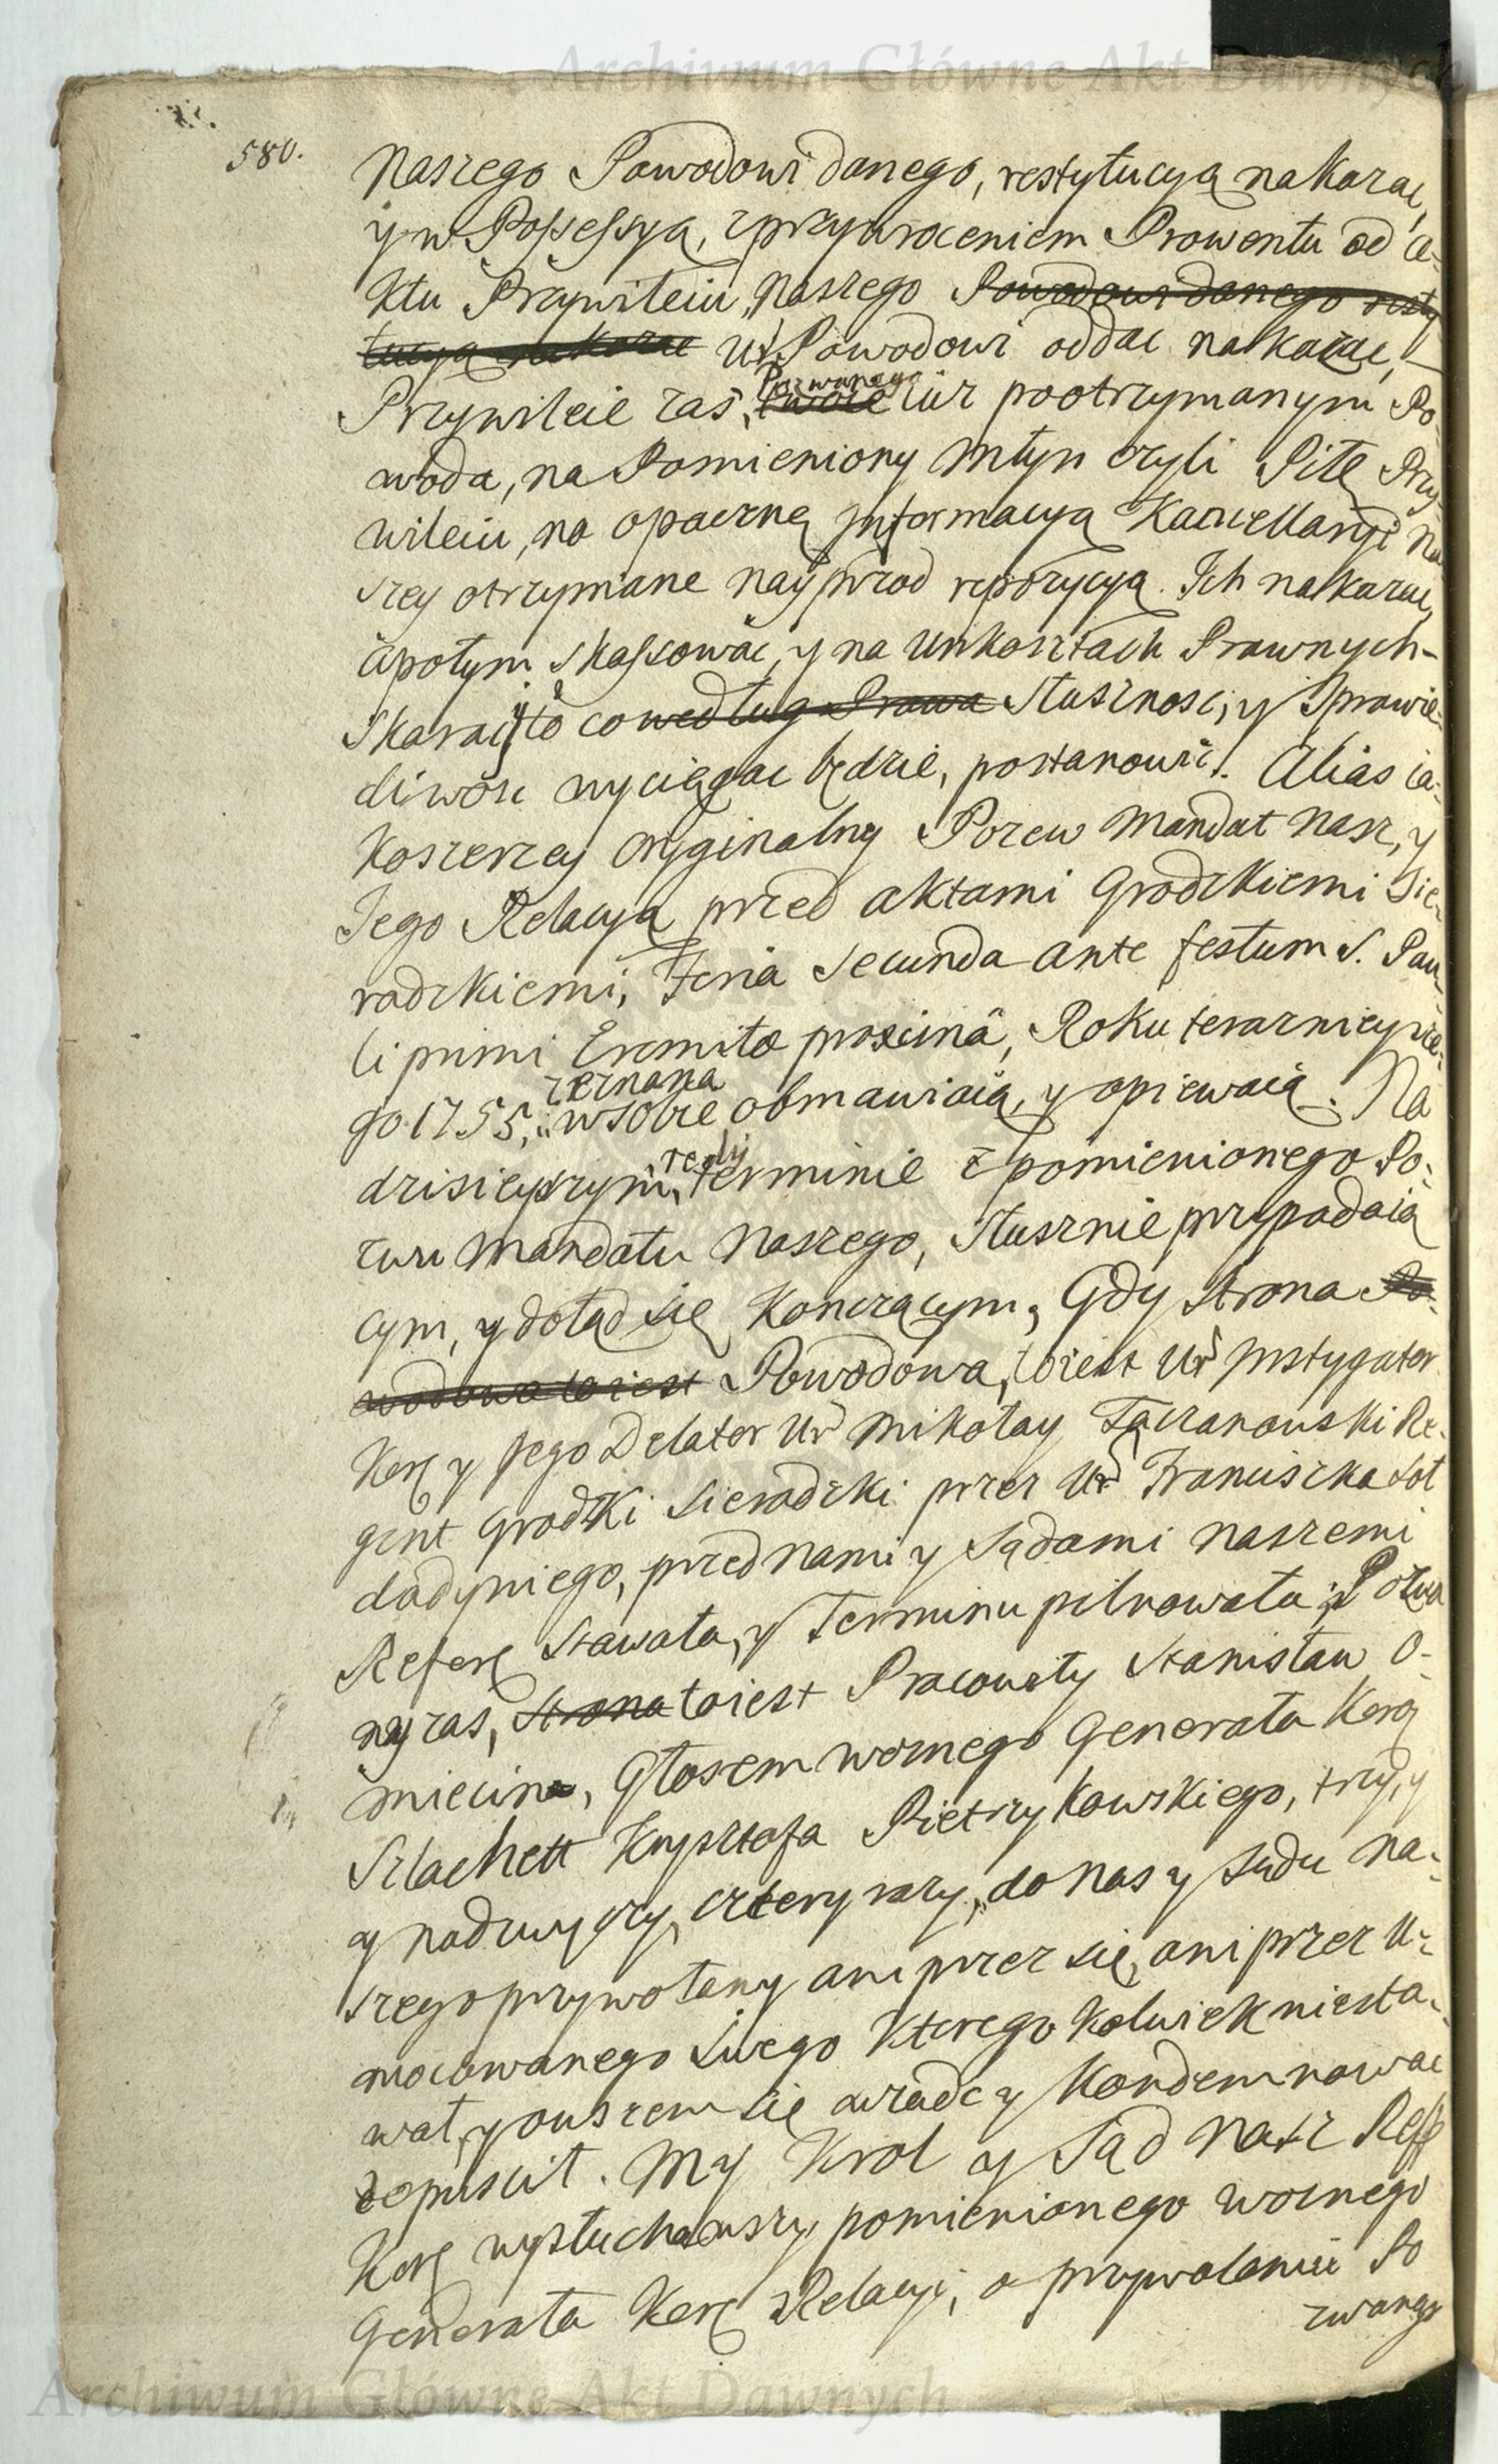 Archiwum Główne Akt Dawnych
580.
Naszego Powodowi danego, restytucyą nakazac,
y w Possessyą, z przywroceniem Prowentu od a-
ktu Przywileiu, Naszego Powodowi danego resty
tucyą nakazac Ur Powodowi oddac nakazac,
Pozwanego
Przywileie zas, swoie iuz po otrzymanym Po-
woda, na Pomieniony Młyn czyli Piłę Przy-
wileiu, na opaczną Informacyą Kancellaryi Na
szey otrzymane nayprzod repozycyą Ich nakazac,
a potym skassowac, y na Unkosztach Prawnych-
skarac, y to co według Prawa Słusznosc, y Sprawie-
dliwosc wyciągac będzie, postanowic. Alias ia-
ko szerzey Oryginalny Pozew Mandat Nasz, y
Jego Relacya przed aktami Grodzkiemi Sie-
radzkiemi, Feria Secunda ante festum S. Pau-
li primi Eremitæ proximâ, Roku teraznieysze-
zeznana
go 1755, w sobie obmawiaią, y opiewaią. Na
tedy
dzisieyszym, terminie z pomienionego Po-
zwu Mandatu Naszego, słusznie przypadaią
cym, y dotąd się kończącym, Gdy strona Po-
wodowa to iest Powodowa, to iest Ur Instygator
Kor y Jego Delator Ur Mikołay Taczanowski Re-
gent Grodzki Sieradzki przez Ur Franciszka Soł
dadyniego, przed nami y Sądami naszemi
Refer stawała, y Terminu pilnowała; Pozwa
ny zas, strona to iest Pracowity Stanisław O-
miecina, Głosem woznego Generała Kor
Szlachett Krysztofa Pietrzykowskiego, trzy, y
y nadwyczy, cztery razy, do nas y sądu na-
szego przywołany ani przez się, ani przez U-
mocowanego swego ktorego kolwiek niesta-
wał, y owszem się zradzc y Kondemnowac
dopuscił. My Krol y Sąd Nasz Reff
Kor wysłuchawszy, pomienionego woznego
Generała Kor Relacyi, o przywołaniu Po
zwanego
Archiwum Główne Akt Dawnych